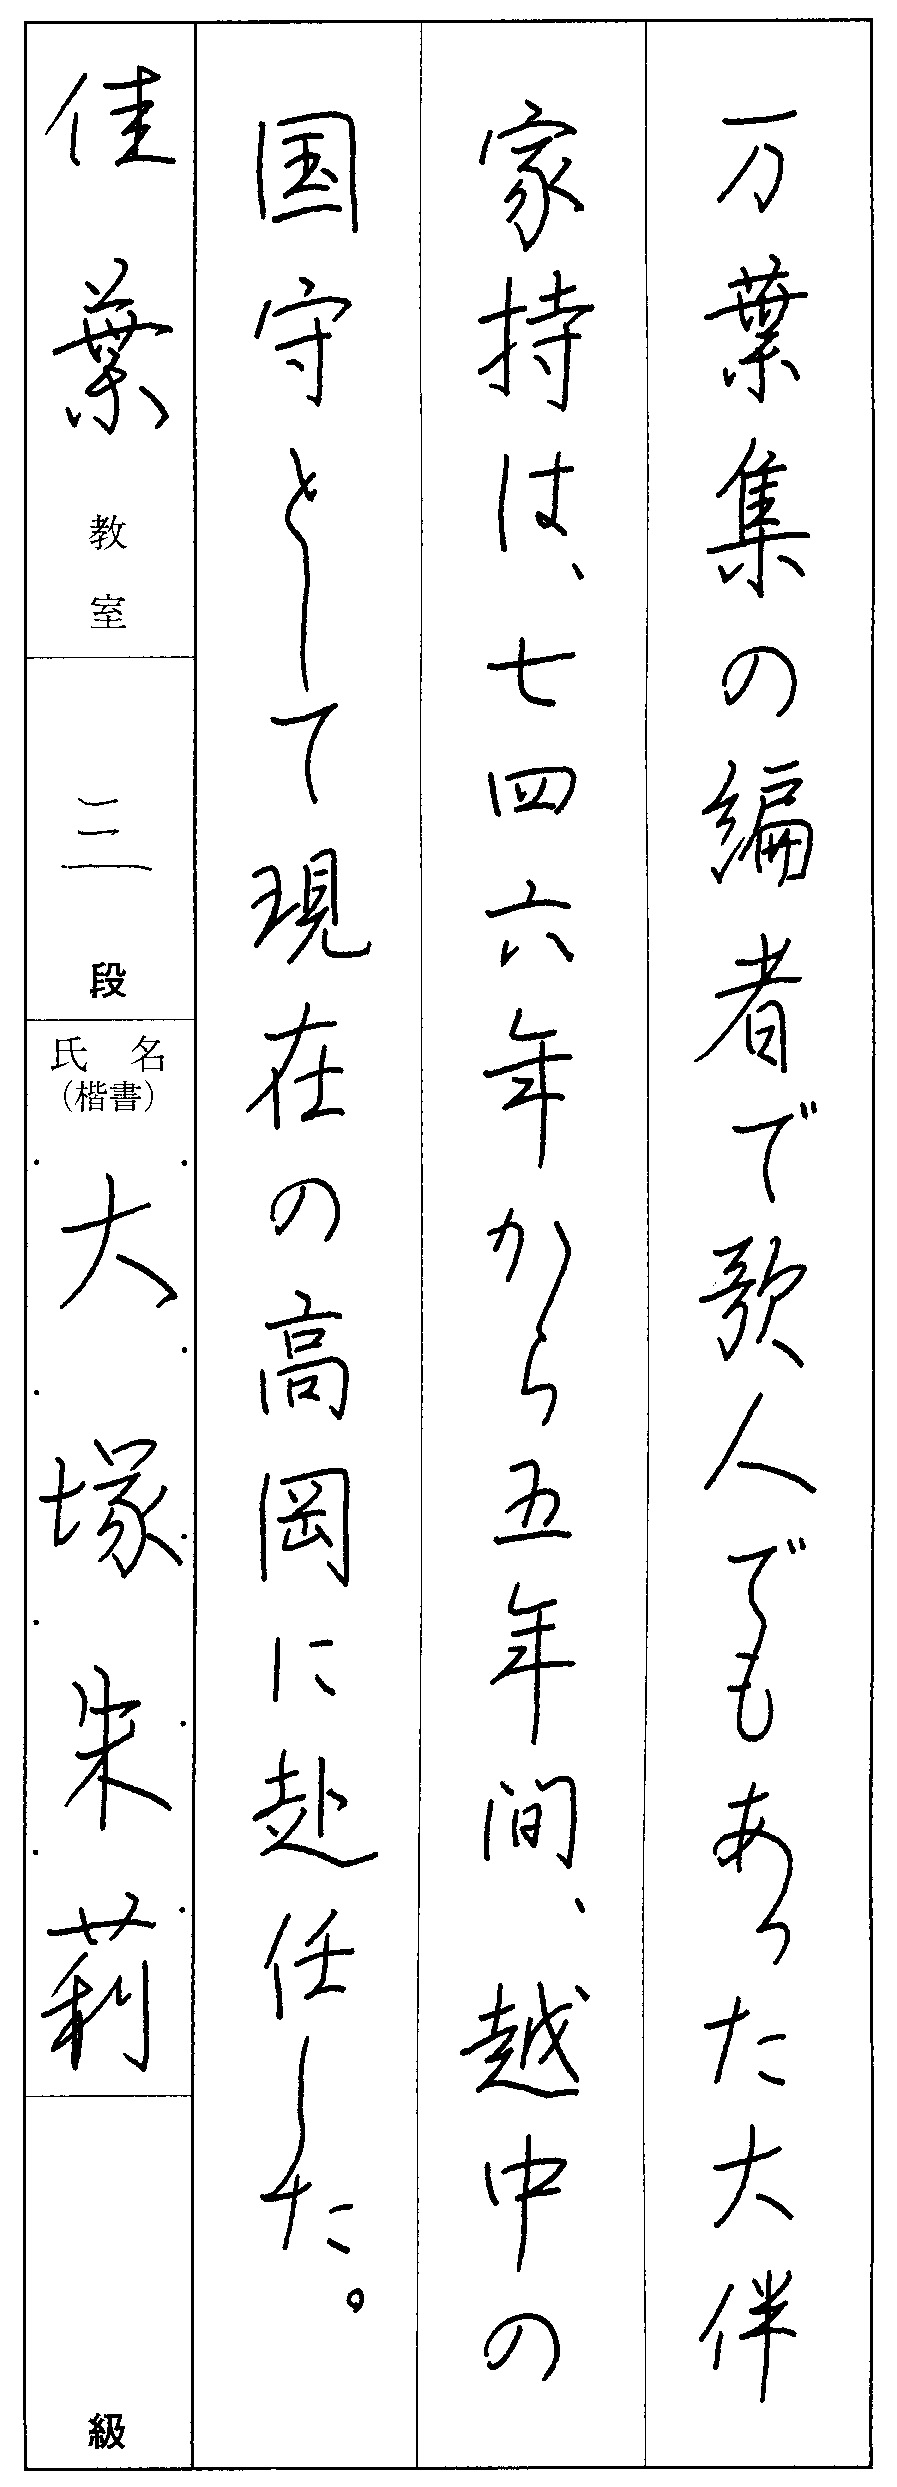 万葉集の編者で歌人でもあった大伴
家持は、七四六年から五年間、越中の
国守として現在の高岡に赴任した。
佳葉教室
三段
氏名
(楷書)
大塚朱莉
級